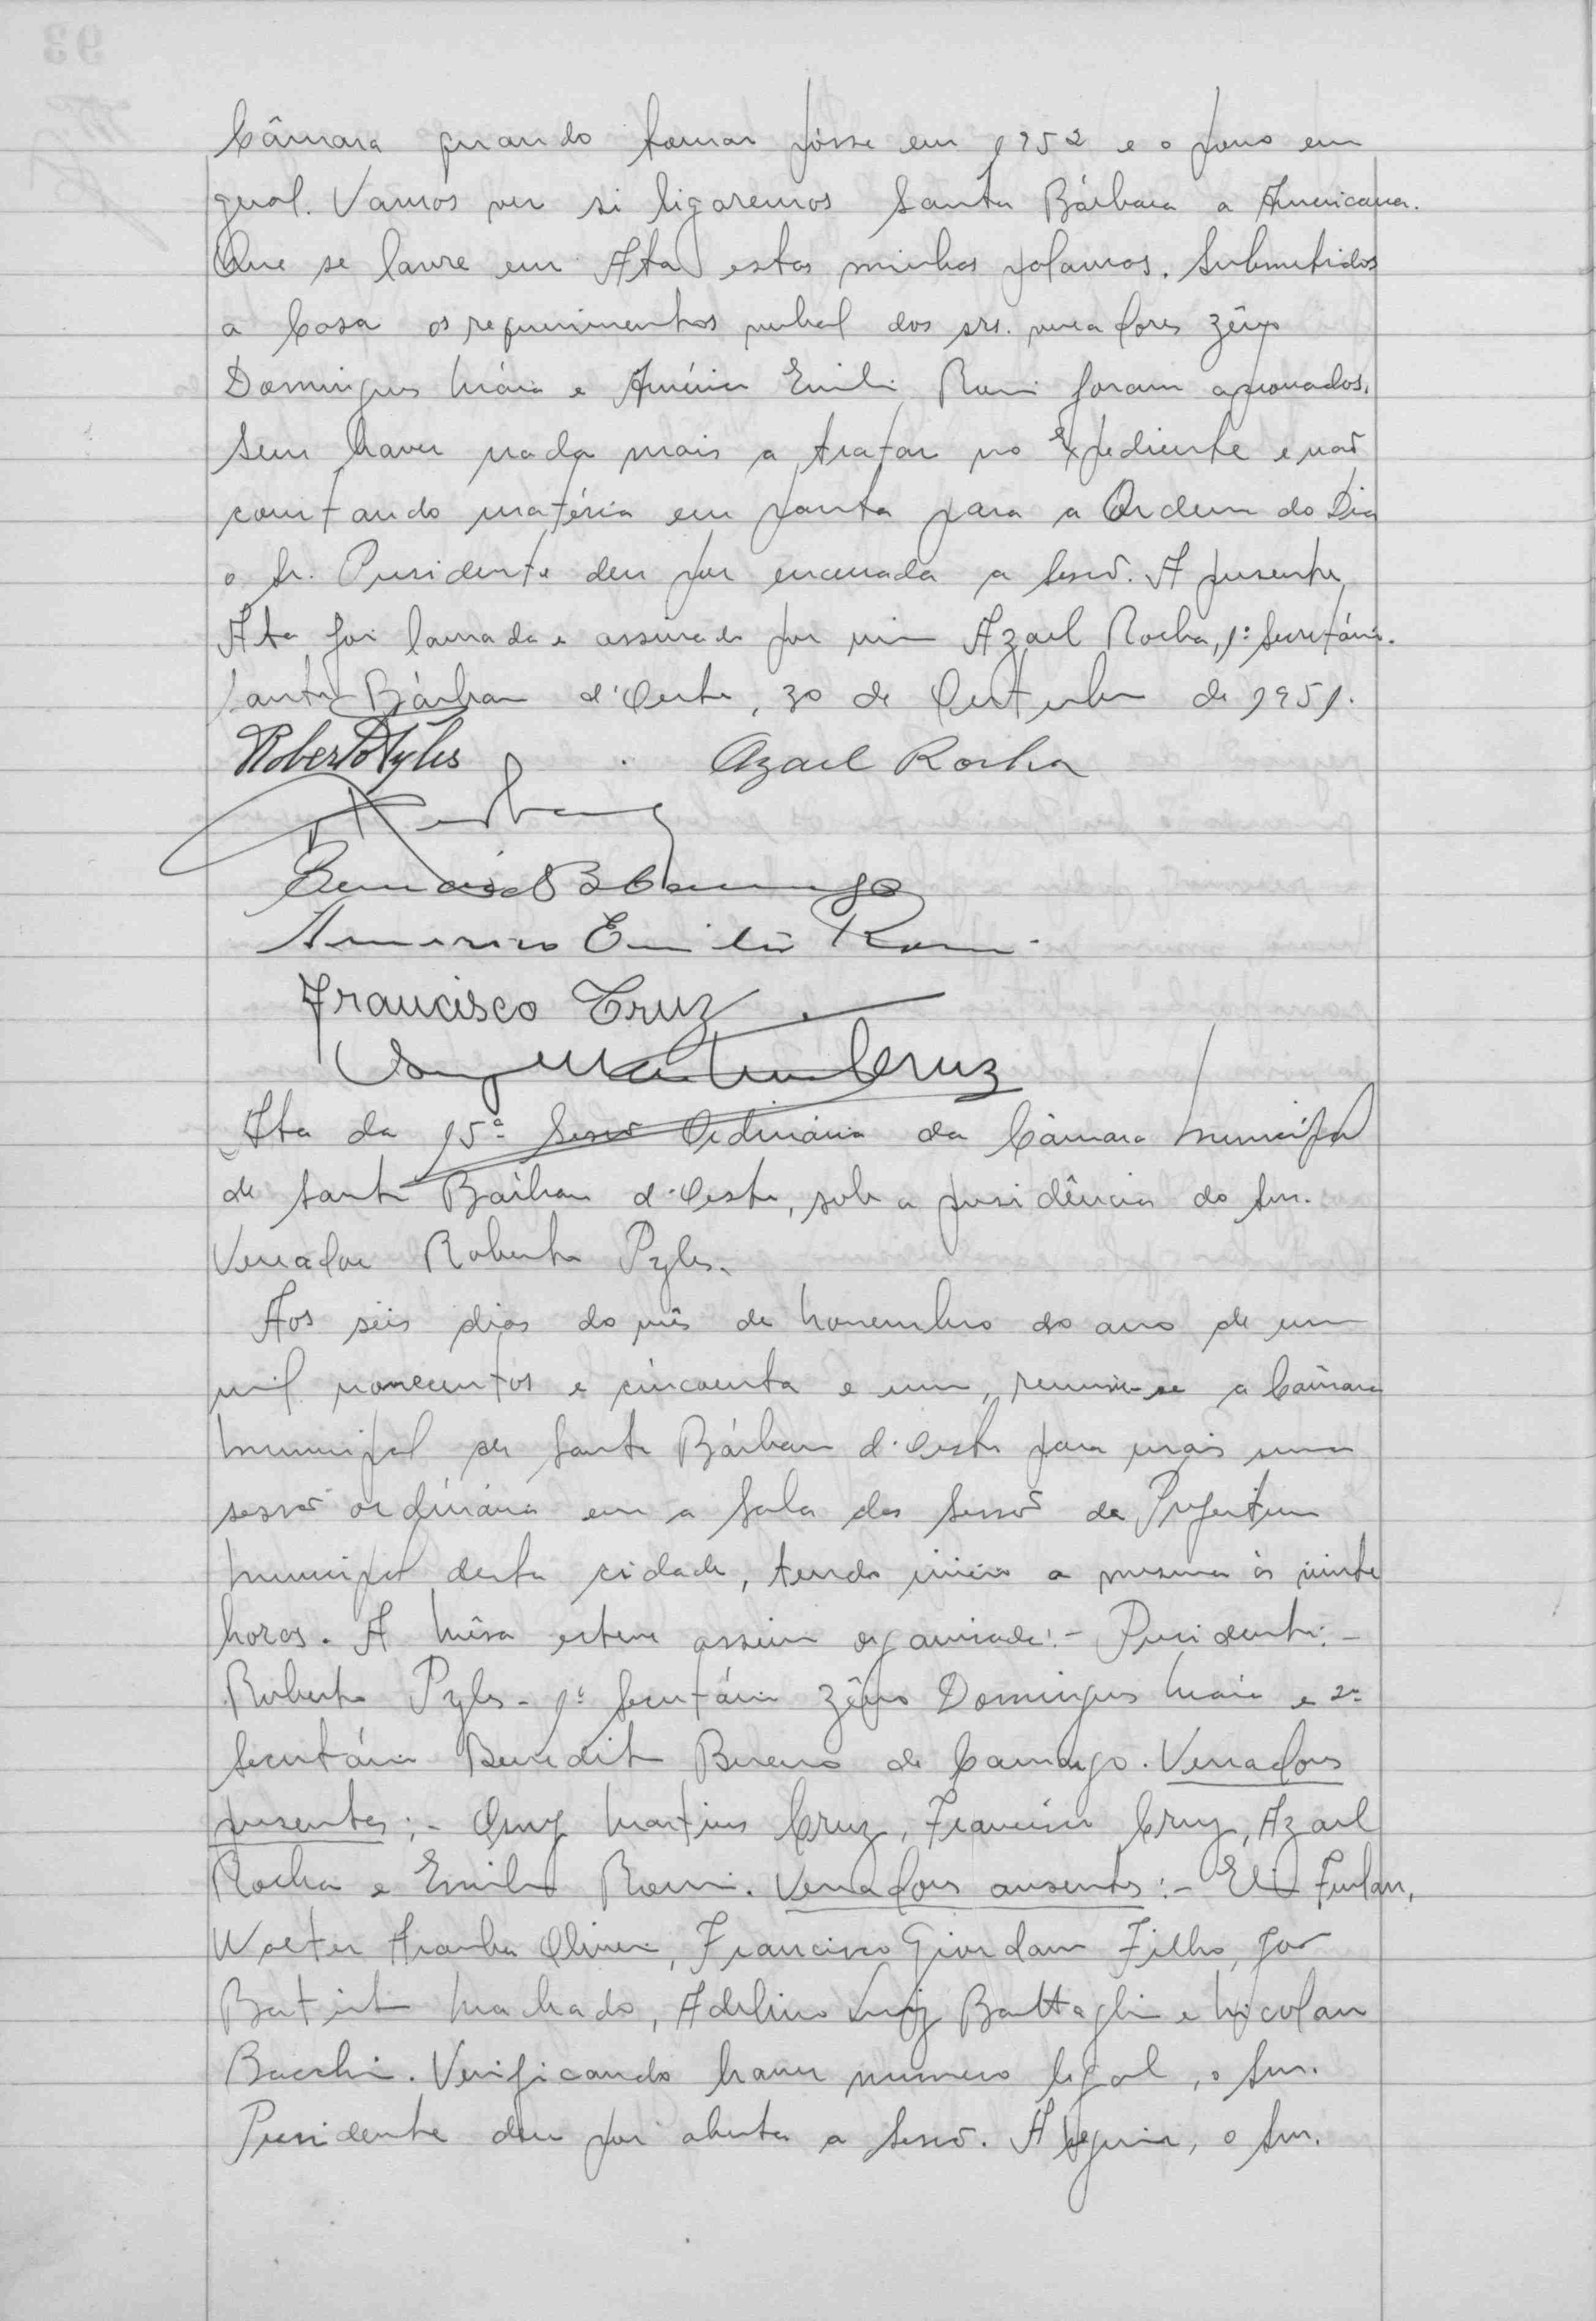 Câmara quando tomar pósse em 1952 e o povo em
geral. Vamos ver si ligaremos Santa Bárbara a Americana.
Que se lavre em Ata estas minhas palavras. Submetidos
a Casa os requerimentos verbal dos srs. vereadores Zêno
Domingues Máia e Américo Emilio Romi foram aprovados.
Sem haver nada mais a tratar no Expediente e não
constando matéria em pauta para a Ordem do Dia
o Sr. Presidente deu por encerrada a Sessão. A presente
Ata foi lavrada e assinada por mim Azael Rocha, 1º Secretário.
Santa Bárbara d'Oeste, 30 de Outubro de 1951.
Roberto Pyles Azael Rocha
Benedito B Camargo
Americo Emilio Romi
Francisco Cruz
Osny Martins Cruz
Ata da 15ª Sessão Ordinária da Câmara Municipal
de Santa Bárbara d'Oeste, sob a presidência do Snr.
Vereador Roberto Pyles.
Aos seis dias do mês de Novembro do ano de um
mil novecentos e cincoenta e um, reuniu-se a Câmara
Municipal de Santa Bárbara d'Oeste para mais uma
sessão ordinária em a Sala das Sessão da Prefeitura
Municipal desta cidade, tendo inicio a mesma ás vinte
horas. A Mêsa esteve assim organisada:- Presidente:-
Roberto Pyles - 1º Secretário Zêno Domingues Maia e 2º
Secretário Benedito Bueno de Camargo. Vereadores
presentes:- Osny Martins Cruz, Francisco Cruz, Azael
Rocha e Emilio Romi. Vereadores ausentes:- Furlan,
Walter Aranha Oliveira, Francisco Giordano Filho, João
Batista Machado, Adelino Luiz Battaglia e Nicolau
Bacchi. Verificando haver numero legal, o Snr.
Presidente deu por aberta a Sessão. A seguir, o Snr.